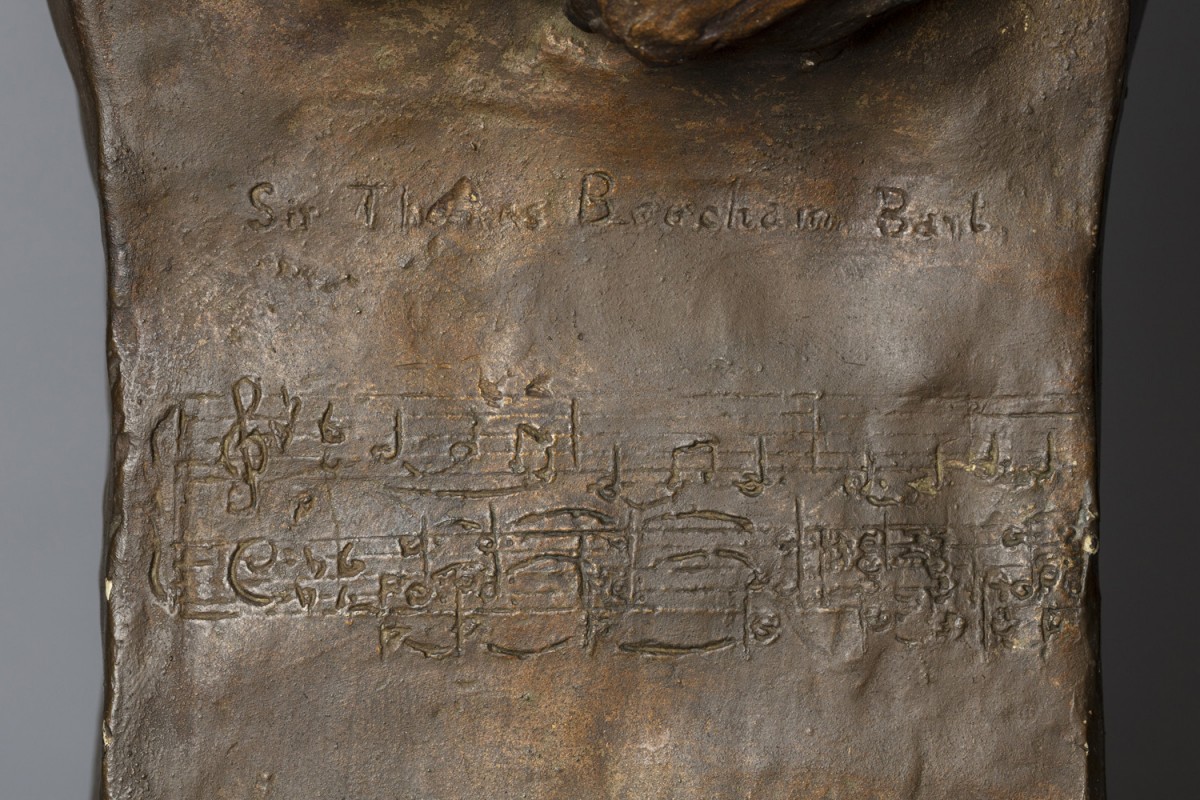 Sir Thomas Beecham Bart.